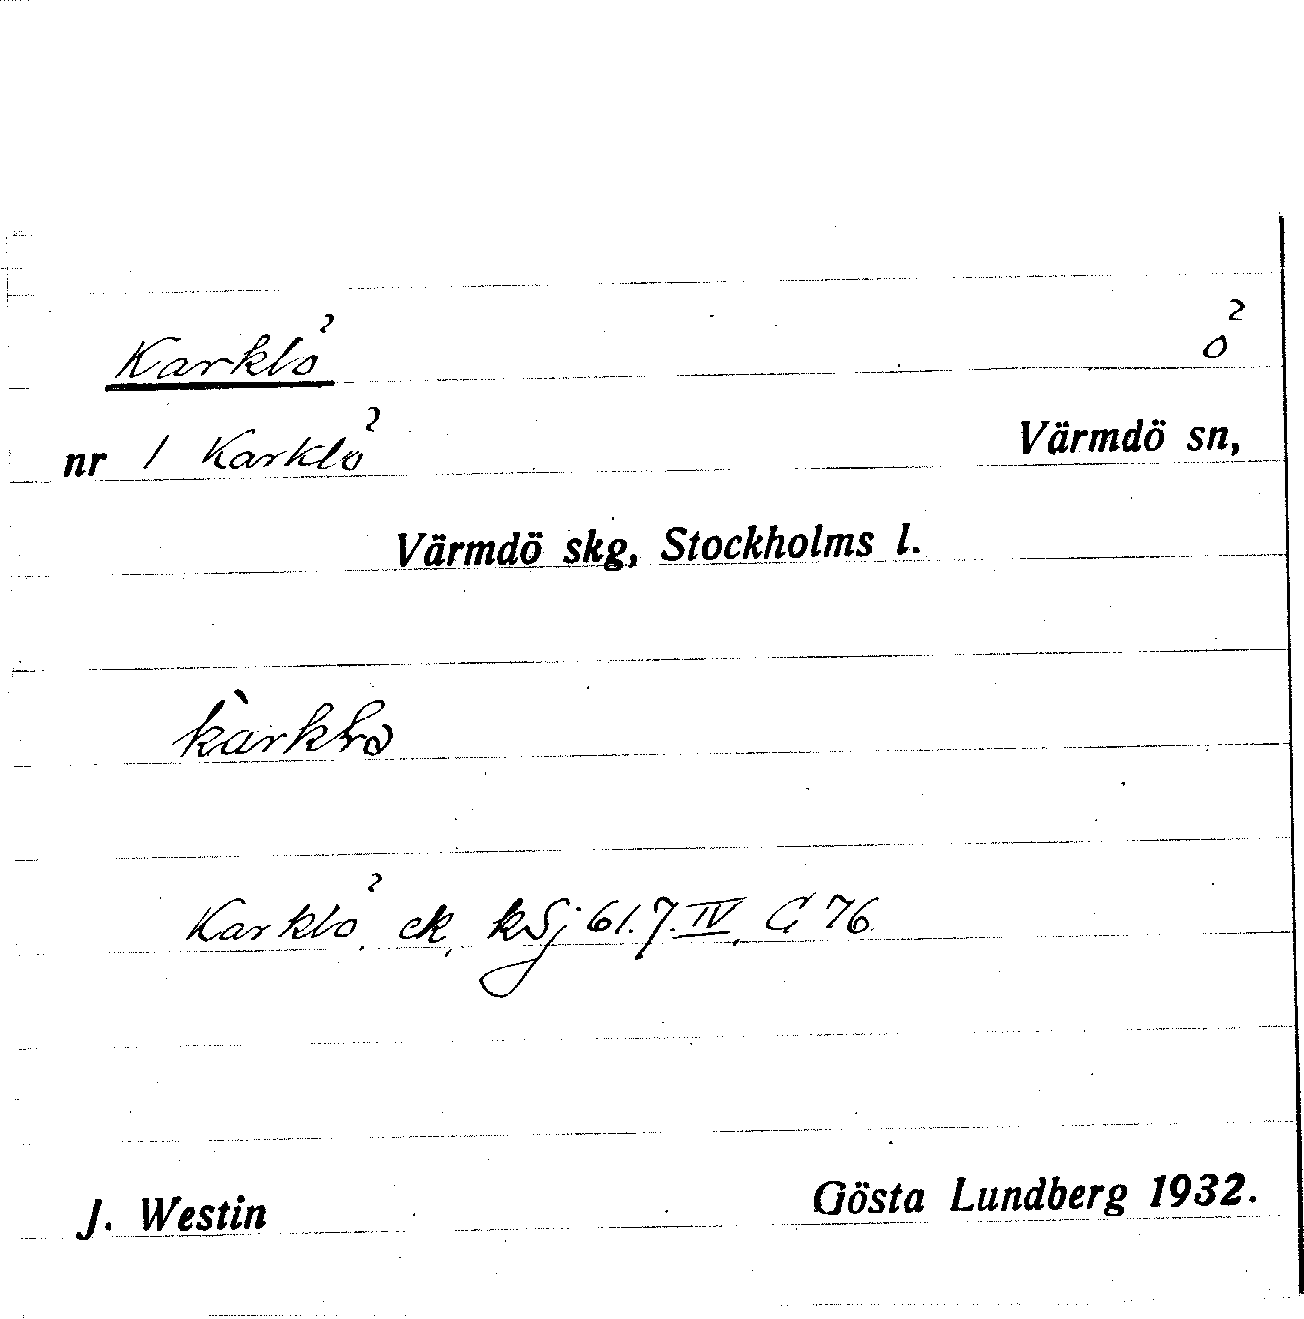 Karklo ? o ?
nr 1 Karklo ? Värmdö sn,
Värmdö skg, Stockholms l.
kàrklo
Karklo ?, ek, kSj 61.7.IV, G 76.
J. Westin Gösta Lundberg 1932.